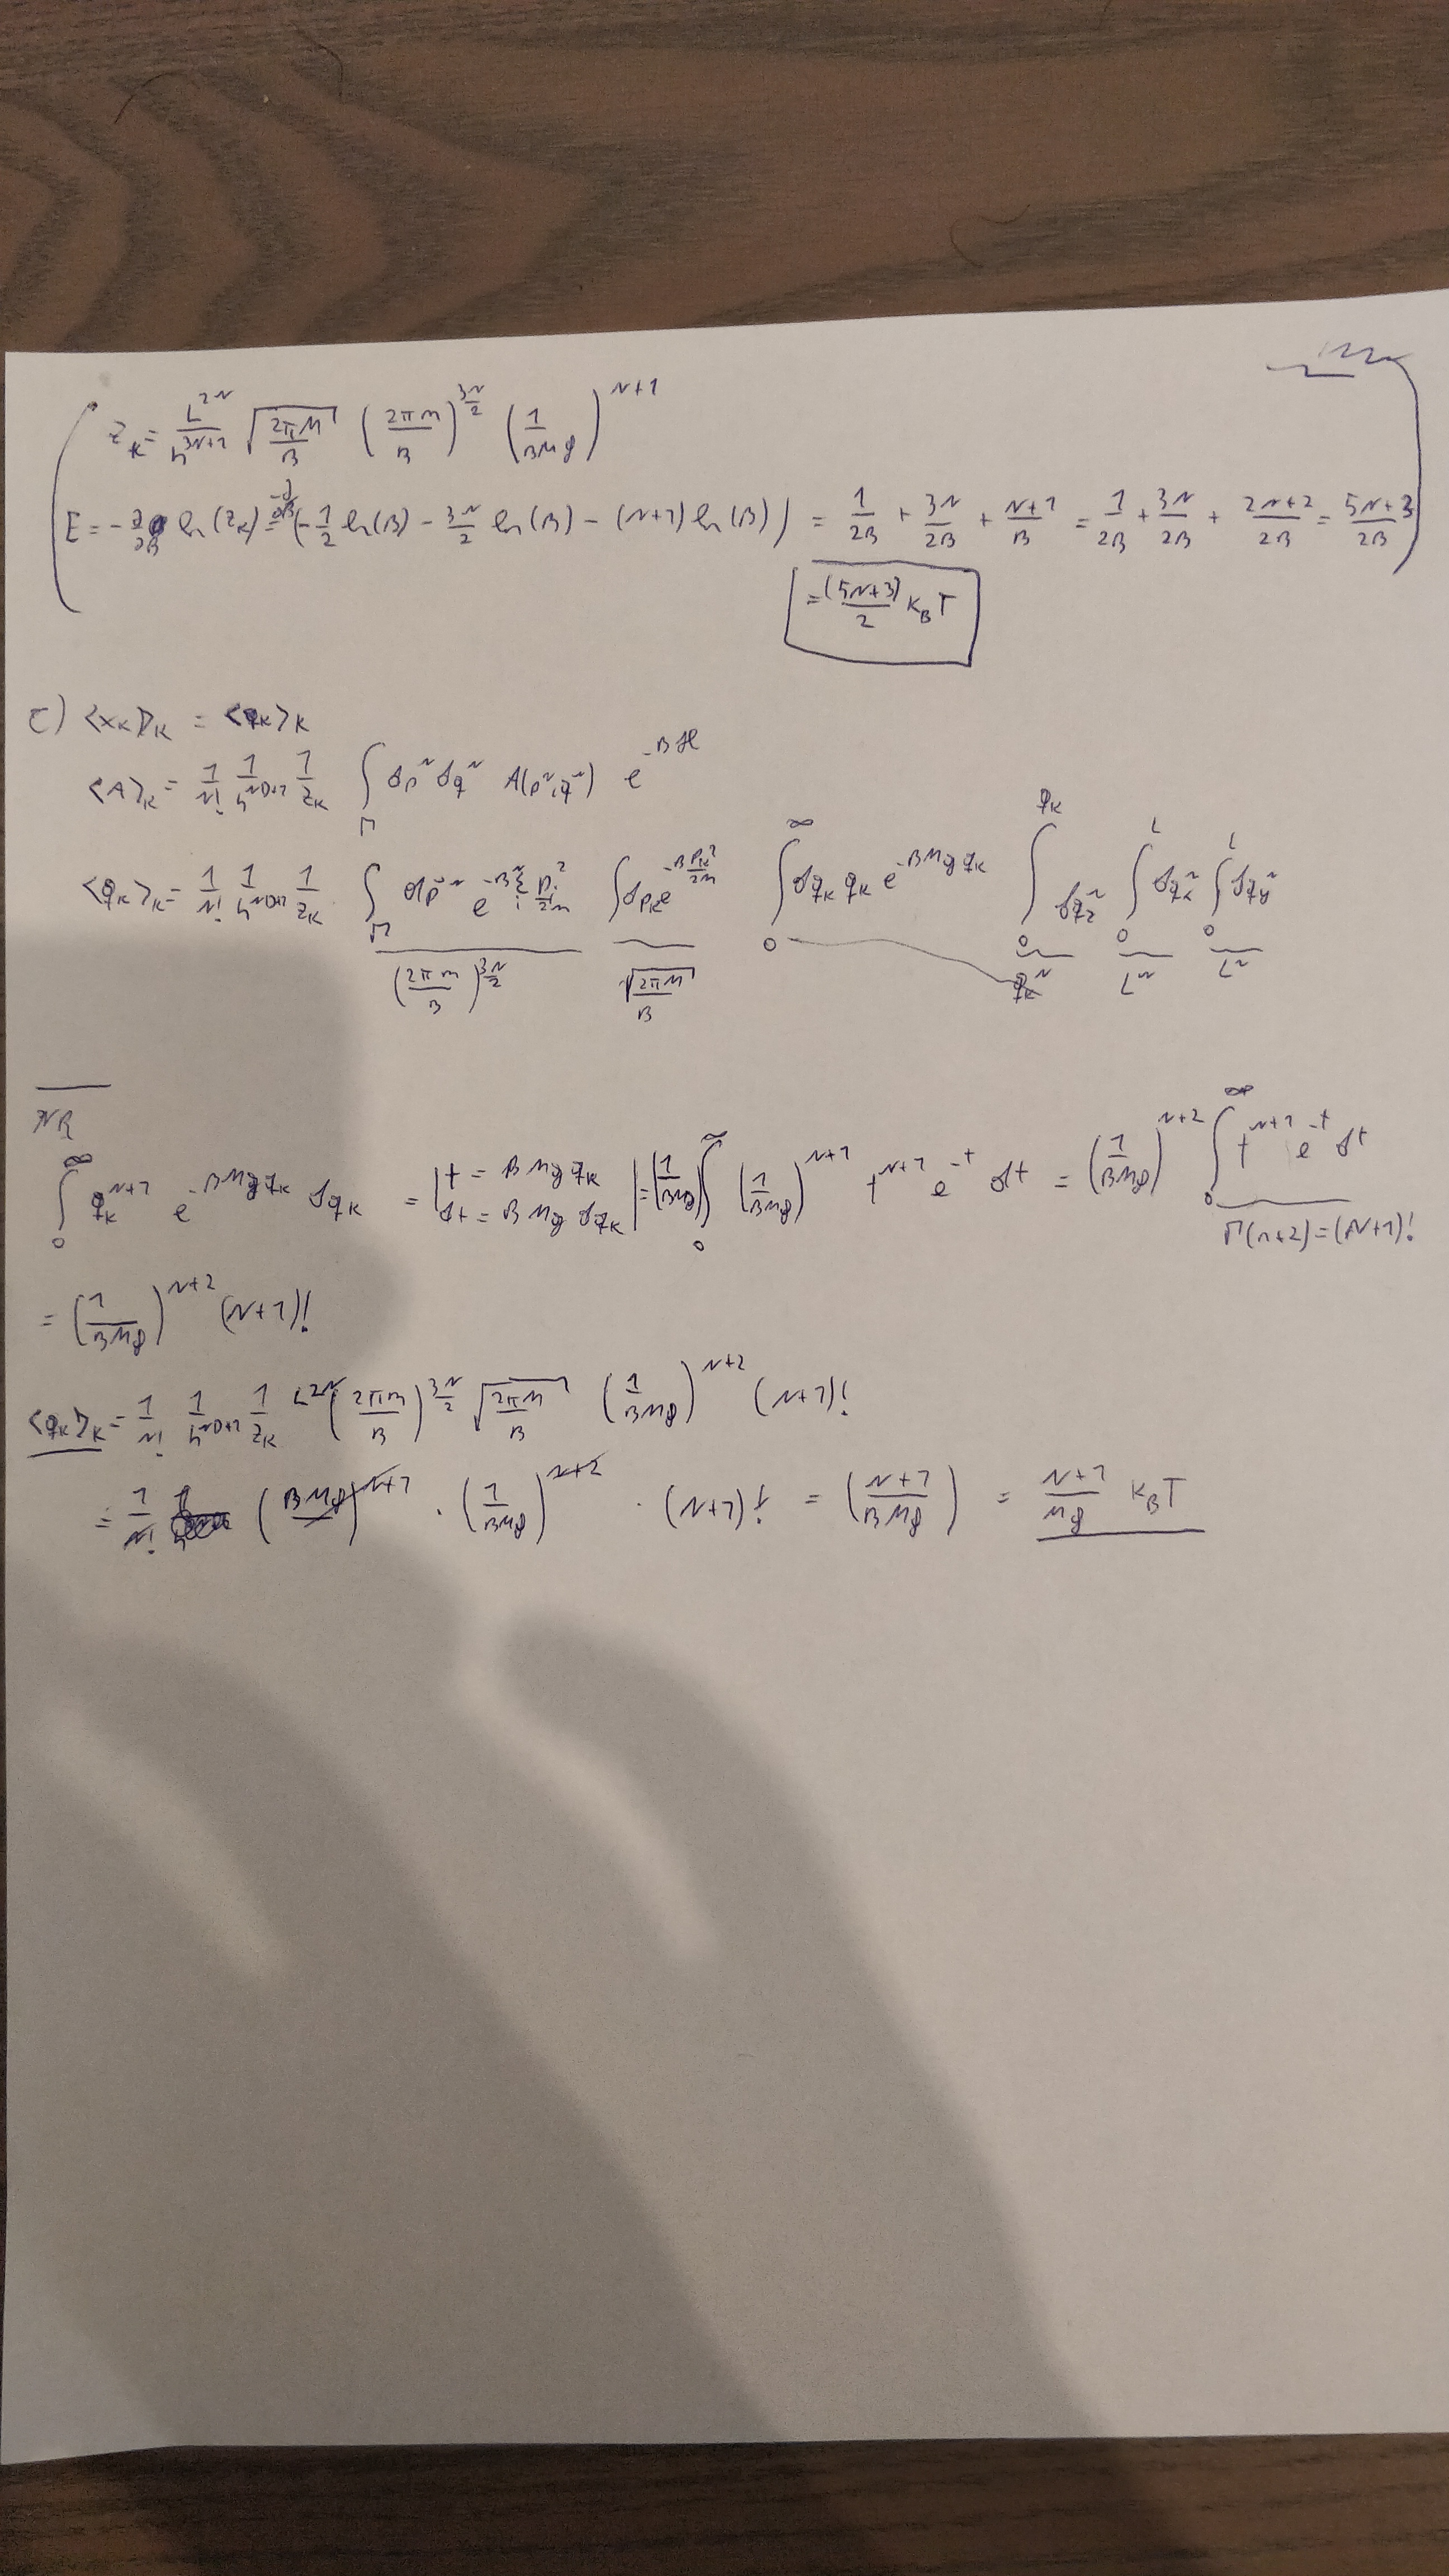 Z_K = L^{2N}/h^{3N+1} √(2πM/β) (2πm/β)^{3N/2} (1/(βMg))^{N+1}
E = -∂/∂β ln(Z_K) = -∂/∂β (-1/2 ln(β) - 3N/2 ln(β) - (N+1) ln(β)) = 1/(2β) + 3N/(2β) + (N+1)/β = 1/(2β) + 3N/(2β) + (2N+2)/(2β) = (5N+3)/(2β)
= (5N+3)/2 K_B T
c) <x_K>_K = <q_K>_K
<A>_K = 1/N! 1/h^{ND+1} 1/Z_K ∫_Γ dp^N dq^N A(p^N, q^N) e^{-βℋ}
<q_K>_K = 1/N! 1/h^{ND+1} 1/Z_K ∫_Γ dp^N e^{-β Σ_i p_i^2/2m} ∫ dp_K e^{-β p_K^2/2M} ∫_0^∞ dq_K q_K e^{-βMg q_K} ∫_0^{q_K} dq_z^N ∫_0^L dq_x^N ∫_0^L dq_y^N
(2πm/β)^{3N/2} √(2πM/β) q_K^N L^N L^N
NR
∫_0^∞ q_K^{N+1} e^{-βMg q_K} dq_K = | t = βMg q_K dt = βMg dq_K | = (1/(βMg)) ∫_0^∞ (1/(βMg))^{N+1} t^{N+1} e^{-t} dt = (1/(βMg))^{N+2} ∫_0^∞ t^{N+1} e^{-t} dt
Γ(n+2) = (N+1)!
= (1/(βMg))^{N+2} (N+1)!
<q_K>_K = 1/N! 1/h^{ND+1} 1/Z_K L^{2N} (2πm/β)^{3N/2} √(2πM/β) (1/(βMg))^{N+2} (N+1)!
= 1/N! (βMg)^{N+1} · (1/(βMg))^{N+2} · (N+1)! = ((N+1)/(βMg)) = (N+1)/(Mg) K_B T